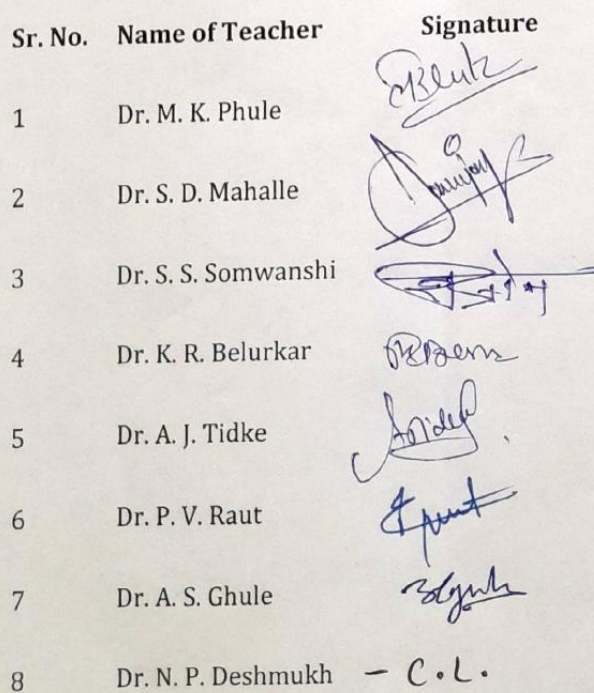 Sr. No. Name of Teacher Signature
1 Dr. M. K. Phule
2 Dr. S. D. Mahalle
3 Dr. S. S. Somwanshi
4 Dr. K. R. Belurkar
5 Dr. A. J. Tidke
6 Dr. P. V. Raut
7 Dr. A. S. Ghule
8 Dr. N. P. Deshmukh - C.L.